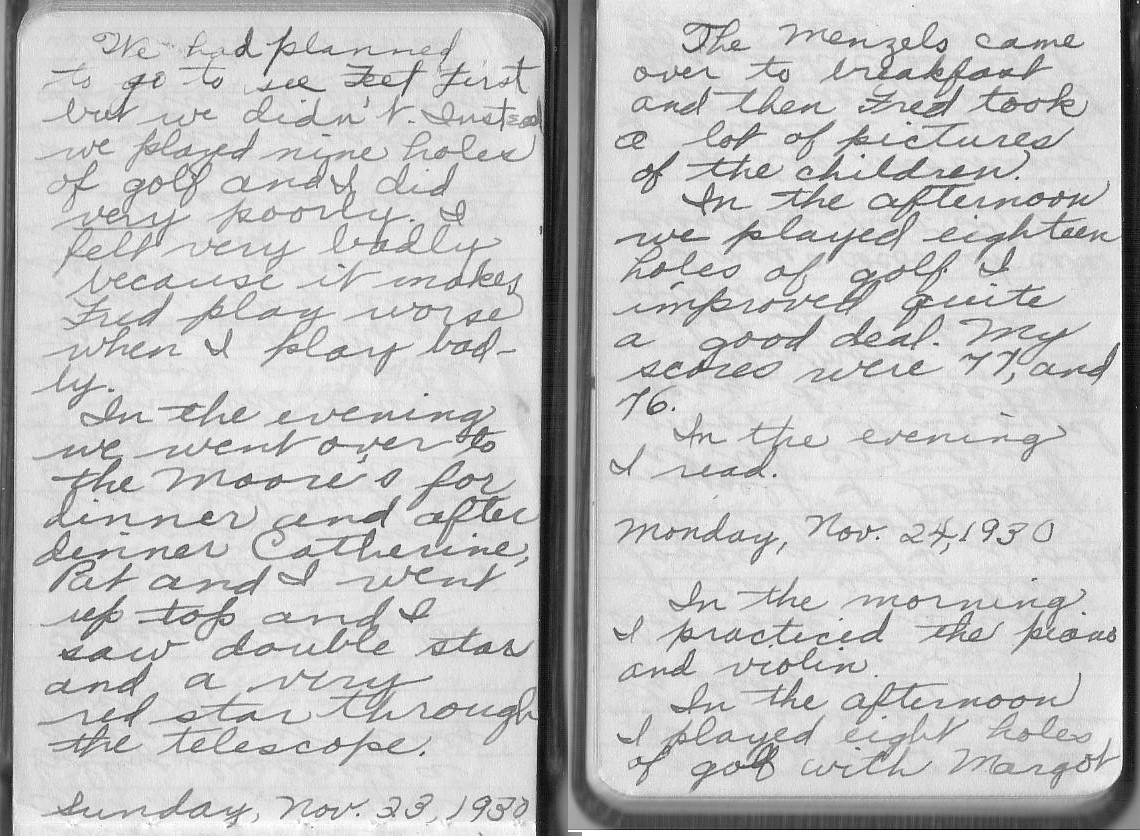 We had planned
to go to see Feet First
but we didn't. Instead
we played nine holes
of golf and I did
very poorly. I
felt very badly
because it makes
Fred play worse
when I play bad-
ly.
In the evening
we went over to
the Moore's for
dinner and after
dinner Catherine,
Pat and I went
up top and I
saw double star
and a very
red star through
the telescope.
Sunday, Nov. 23, 1930
The Menzels came
over to breakfast
and then Fred took
a lot of pictures
of the children.
In the afternoon
we played eighteen
holes of golf. I
improved quite
a good deal. My
scores were 77, and
76.
In the evening
I read.
Monday, Nov. 24, 1930
In the morning.
I practiced the piano
and violin.
In the afternoon
I played eight holes
of golf with Margot